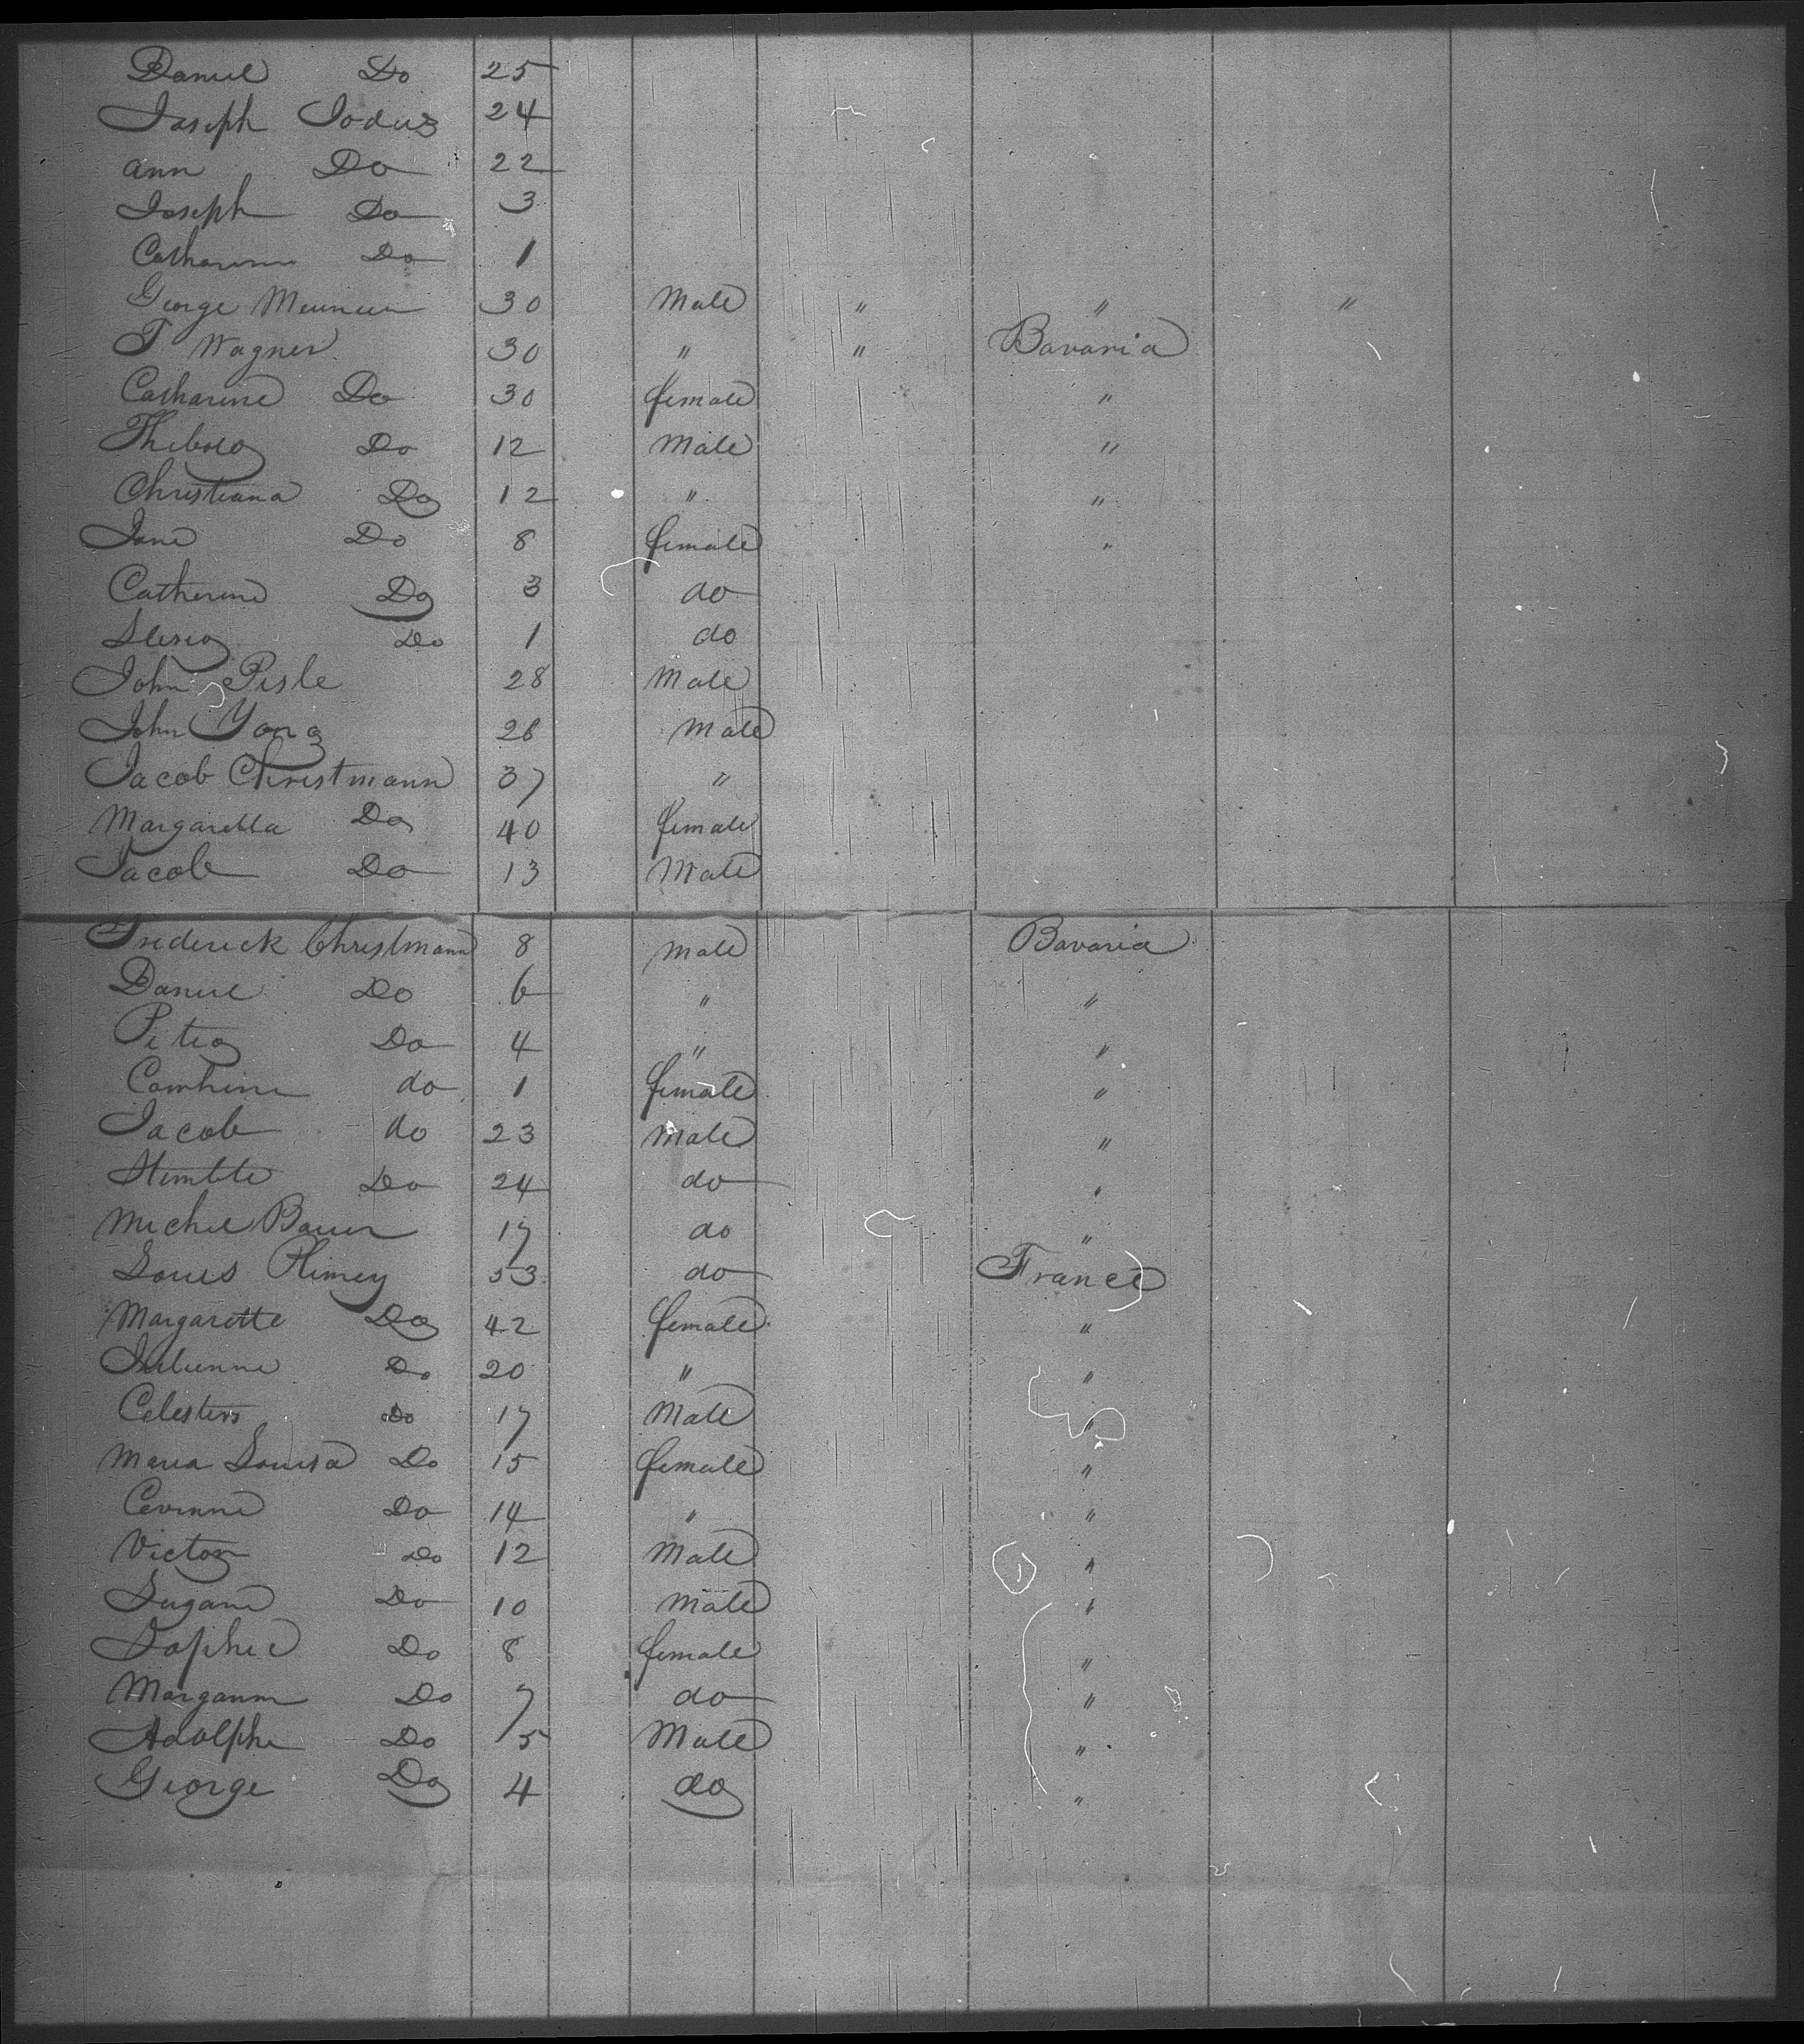 Daniel Do 25
Joseph Joduz 24
Ann Do 22
Joseph Do 3
Catharine Do 1
George Meunier 30 Male " " "
T Wagner 30 " " Bavaria
Catharine Do 30 female "
Thibolo Do 12 Male "
Christiana Do 12 " "
Jane Do 8 female "
Catherine Do 3 do
Do 1 do
John Pisle 28 Male
John Yong 28 Male
Jacob Christmann 37 "
Margaretta Do 40 female
Jacob Do 13 Male
Frederick Christmann 8 Male Bavaria
Daniel Do 6 " "
Peter Do 4 " "
do 1 female "
Jacob do 23 Male "
Do 24 do "
Michel Bauer 17 do "
Louis Plimey 53 do France
Margarette Do 42 female "
Julienne Do 20 " "
Celestin Do 17 Male "
Maria Louisa Do 15 female "
Corinne Do 14 " "
Victor Do 12 Male "
Eugane Do 10 Male "
Sophie Do 8 female "
Do 7 do "
Adolphe Do 5 Male "
George Do 4 do "